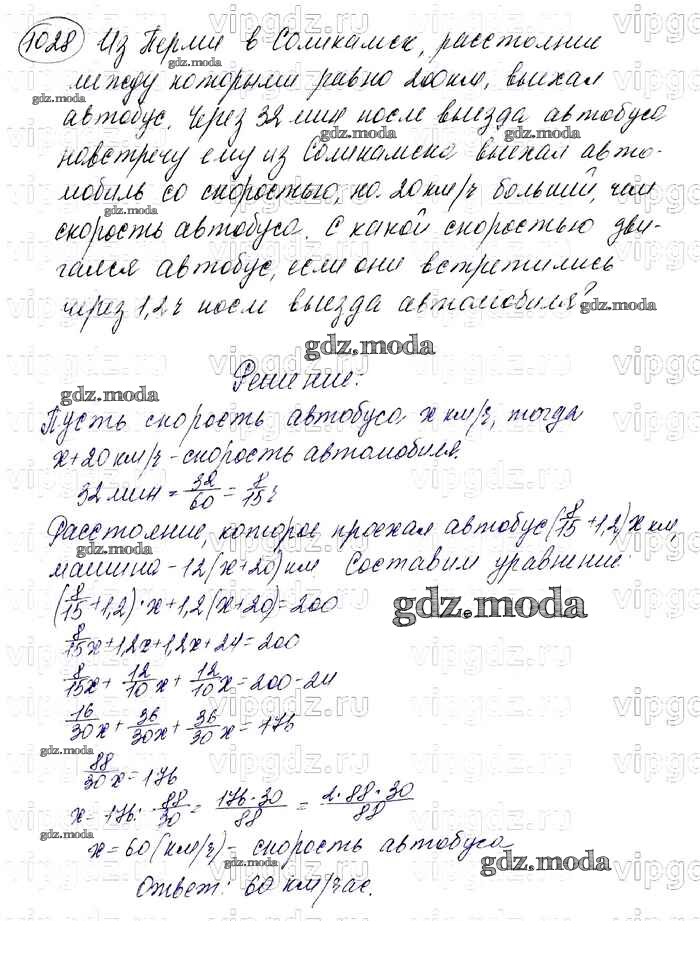 1028 Из Перми в Соликамск, расстояние
между которыми равно 200км, выехал
автобус. Через 32 мин после выезда автобуса
навстречу ему из Соликамска выехал авто-
мобиль со скоростью, на 20 км/ч больший, чем
скорость автобуса. С какой скоростью дви-
гался автобус, если они встретились
через 1,2 ч после выезда автомобиля?
gdz.moda
Решение:
Пусть скорость автобуса x км/ч, тогда
x+20 км/ч - скорость автомобиля.
32 мин = 32/60 = 8/15 ч
Расстояние, которое проехал автобус (8/15 + 1,2) x км,
машина - 12 (x+20) км Составим уравнение:
(8/15 + 1,2) · x + 1,2 (x+20) = 200
gdz.moda
8/15x + 1,2x + 1,2x + 24 = 200
8/15x + 12/10x + 12/10x = 200 - 24
16/30x + 36/30x + 36/30x = 176
88/30x = 176
x = 176 : 88/30 = 176·30/88 = 2·88·30/88
x = 60 (км/ч) - скорость автобуса
gdz.moda
Ответ: 60 км/час.